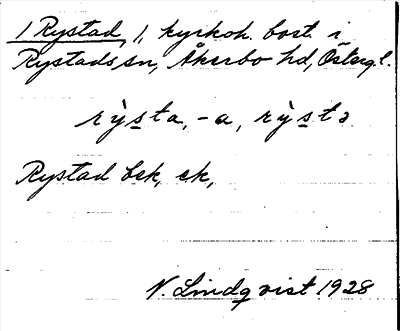 1 Rystad 1, kyrkoh. bost. i
Rystads sn, Åkerbo hd, Östergl.
rỳsta, -a, rỳstə
Rystad bek, ek,
N. Lindqvist 1928